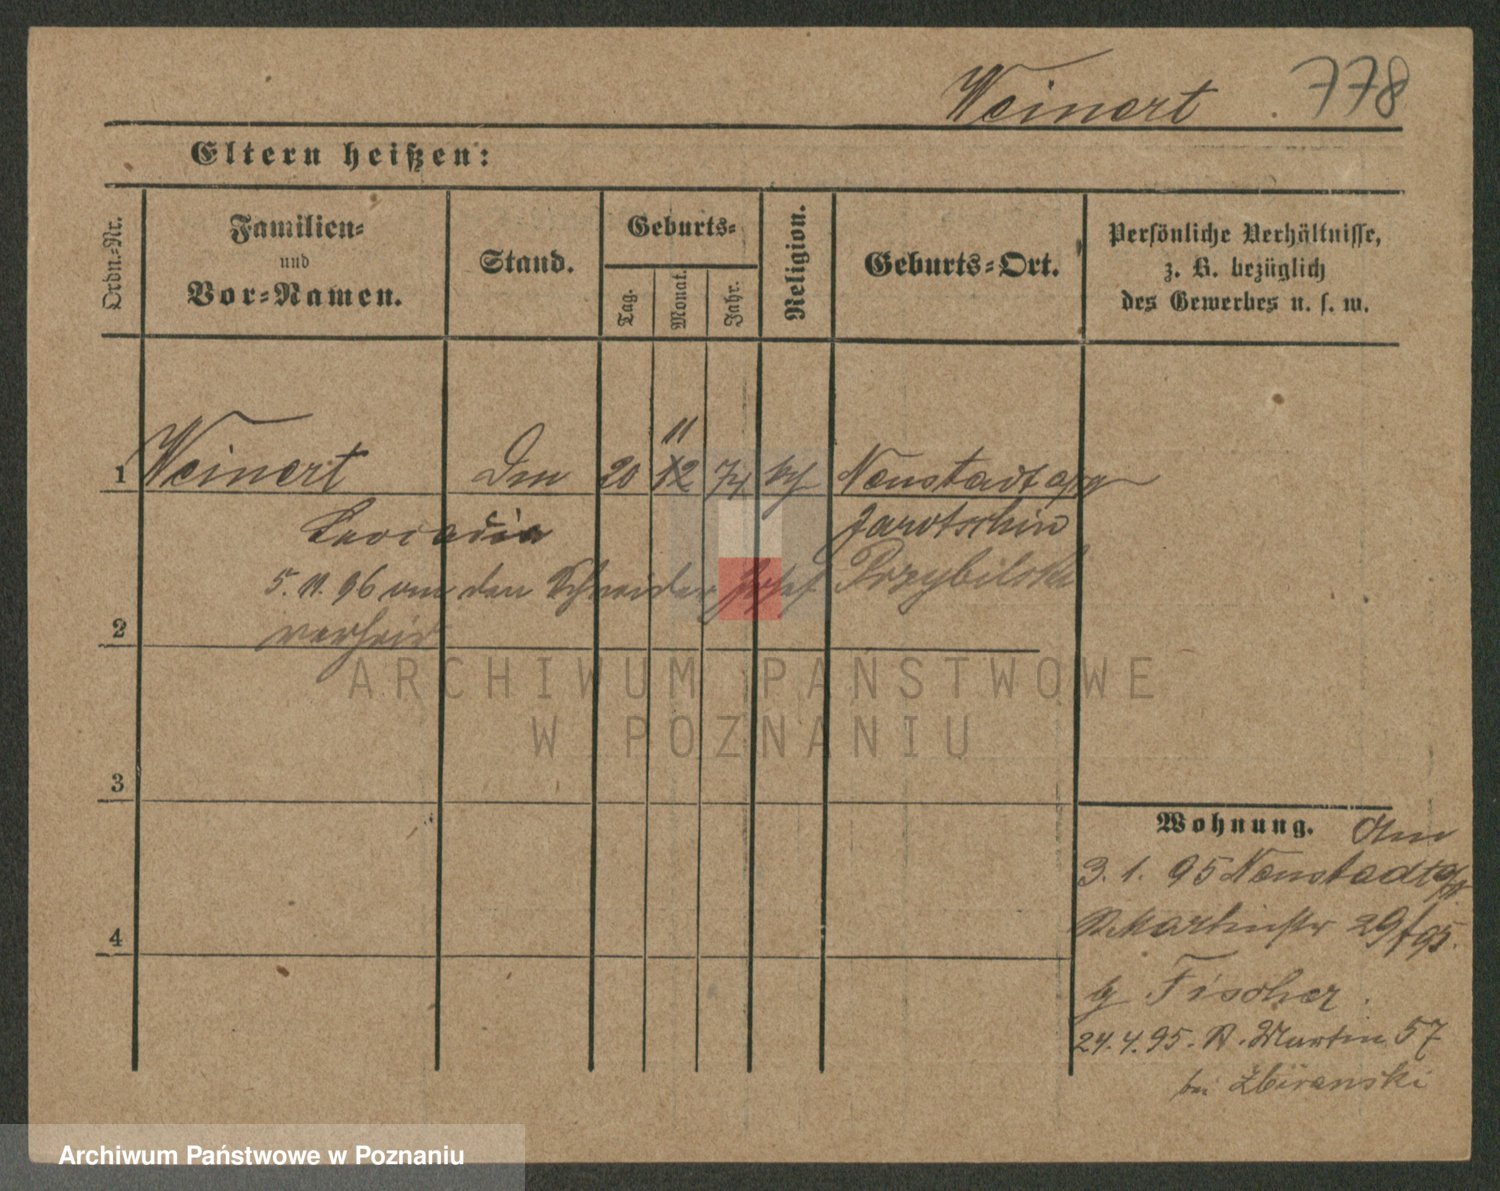 Weinert . 778
Eltern heißen:
Ordn.-Nr.
Familien-
und
Vor-Namen.
Stand.
Geburts-
Tag.
Monat.
Jahr.
Religion.
Geburts-Ort.
Persönliche Verhältnisse,
z. B. bezüglich
des Gewerbes u. s. w.
11
1 Weinert 20 12 74 Neustadt
Leocadia Jarotschin
5. 11. 96 den Schneider Josef Przybilski
2 verheir
3
4
Wohnung.
3. 1. 95 Neustadt
St Martinstr 29/95.
Fischer.
24. 4. 95. St. Martin 57
bei
ARCHIWUM PAŃSTWOWE
W POZNANIU
Archiwum Państwowe w Poznaniu